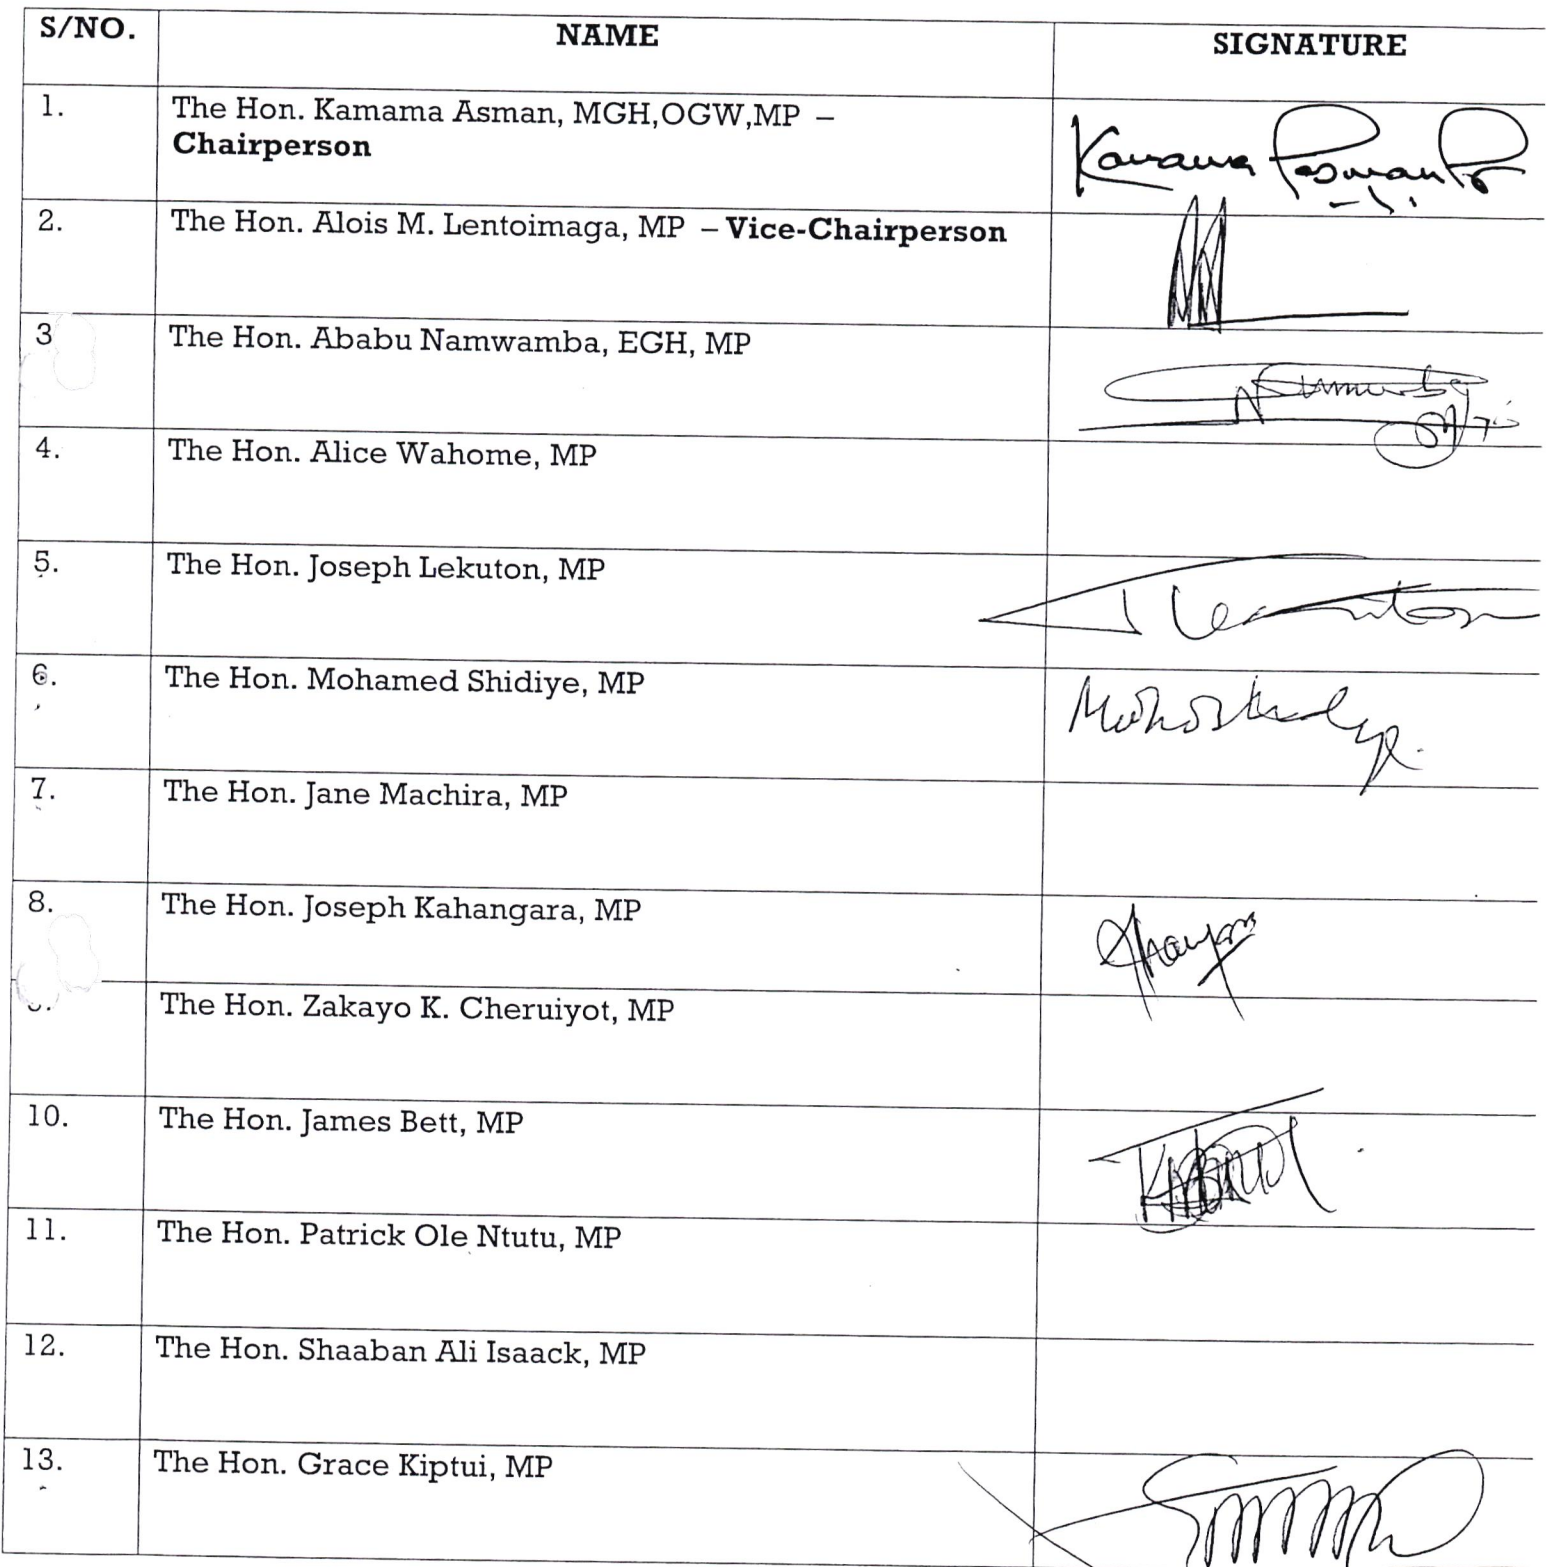 S/NO. NAME SIGNATURE
1. The Hon. Kamama Asman, MGH,OGW,MP –
Chairperson
Kamama Asman
2. The Hon. Alois M. Lentoimaga, MP – Vice-Chairperson
3 The Hon. Ababu Namwamba, EGH, MP
4. The Hon. Alice Wahome, MP
5. The Hon. Joseph Lekuton, MP
6. The Hon. Mohamed Shidiye, MP
7. The Hon. Jane Machira, MP
8. The Hon. Joseph Kahangara, MP
The Hon. Zakayo K. Cheruiyot, MP
10. The Hon. James Bett, MP
11. The Hon. Patrick Ole Ntutu, MP
12. The Hon. Shaaban Ali Isaack, MP
13. The Hon. Grace Kiptui, MP